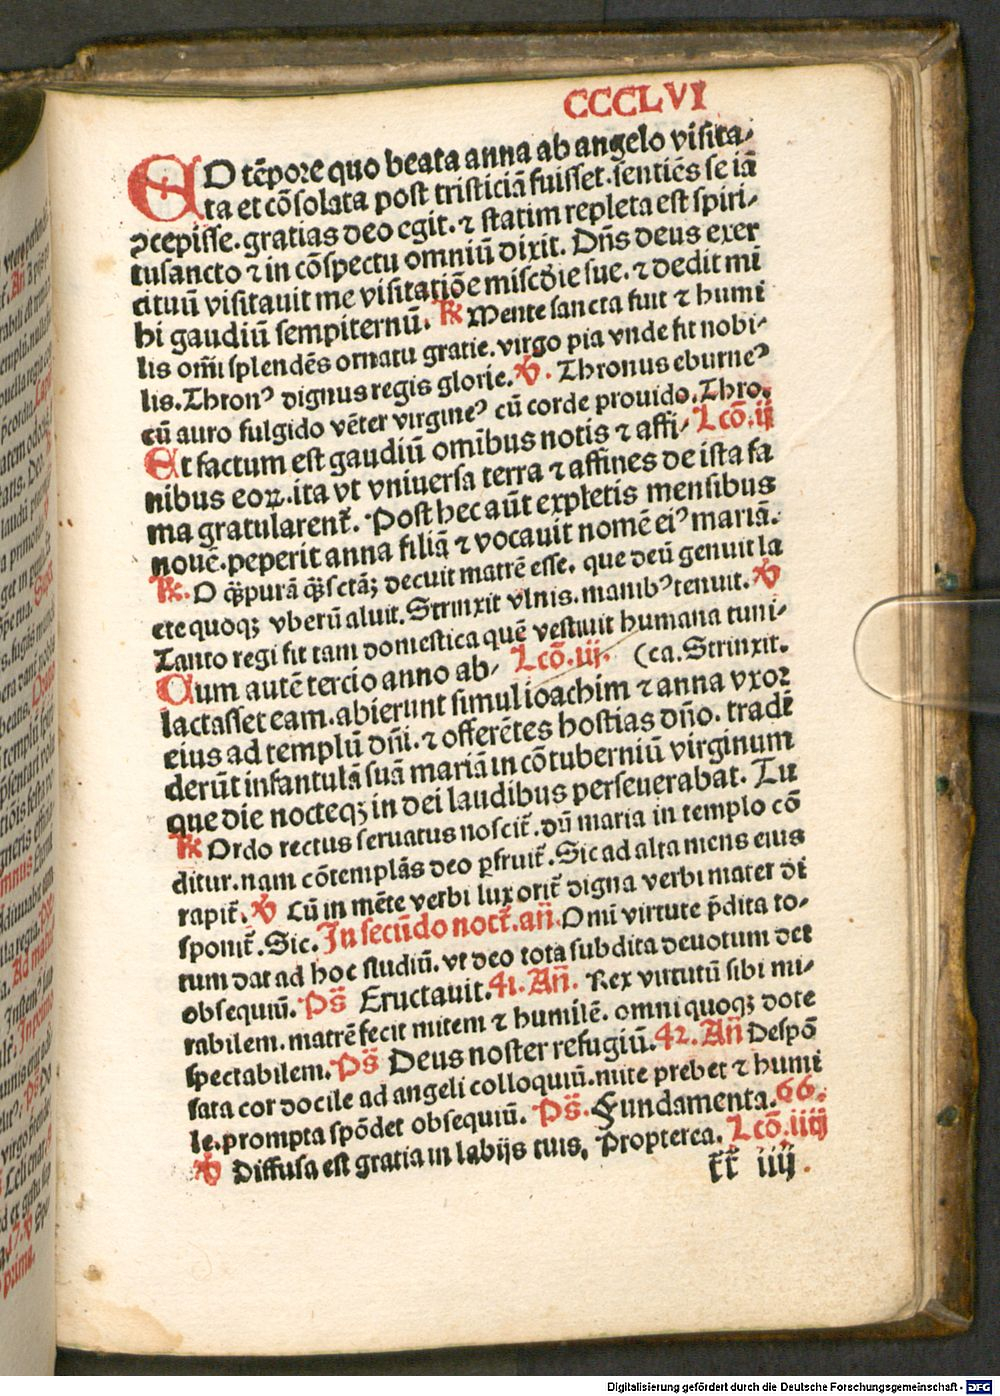 CCCLVI
EO tēpore quo beata anna ab angelo visita⸗
ta et cōsolata post tristiciā fuisset. sentiēs se iā
ꝯcepisse. gratias deo egit. ⁊ statim repleta est spiri⸗
tusancto ⁊ in cōspectu omniū dixit. Dn̄s deus exer
cituū visitauit me visitatiōe miscd̓ie sue. ⁊ dedit mi
hi gaudiū sempiternū. ℟ Mente sancta fuit ⁊ humi
lis om̄i splendēs ornatu gratie. virgo pia vnde fit nobi⸗
lis. Thronꝰ dignus regis glorie. ℣. Thronus eburneꝰ
cū auro fulgido vēter virgineꝰ cū corde prouido. Thro.
Et factum est gaudiū omībus notis ⁊ affi⸗ Lcō. ij
nibus eoꝝ. ita vt vniuersa terra ⁊ affines de ista fa
ma gratularent᷑. Post hec aūt expletis mensibus
nouē. peperit anna filiā ⁊ vocauit nomē eiꝰ mariā.
℟. O q̄ꝫ purā q̄ꝫ sctāꝫ decuit matrē esse. que deū genuit la
cte quoqꝫ vberū aluit. Strinxit vlnis. manibꝰ tenuit. ℣
Tanto regi fit tam domestica quē vestiuit humana tuni⸗
Cum autē tercio anno ab⸗ Lcō. iij. (ca. Strinxit.
lactasset eam. abierunt simul ioachim ⁊ anna vxor
eius ad templū dn̄i. ⁊ offerētes hostias dn̄o. tradē
derūt infantulā suā mariā in cōtuberniū virginum
que die nocteqꝫ in dei laudibus perseuerabat. Tu
℟ Ordo rectus seruatus noscit᷑. dū maria in templo cō
ditur. nam cōtemplās deo ꝑfruit᷑. Sic ad alta mens eius
rapit᷑. ℣ Cū in mēte verbi lux orit᷑ digna verbi mater di
sponit᷑. Sic. In secūdo noct᷑. an̄. Omi virtute p̄dita to⸗
tum dat ad hoc studiū. vt deo tota subdita deuotum det
obsequiū. Ps̄ Eructauit. 41. An̄. Rex virtutū sibi mi⸗
rabilem. matrē fecit mitem ⁊ humilē. omni quoqꝫ dote
spectabilem. Ps̄ Deus noster refugiū. 42. An̄ Despō
sata cor docile ad angeli colloquiū. mite prebet ⁊ humi
le. prompta spōdet obsequiū. Ps̄. Fundamenta. 66.
℣ Diffusa est gratia in labijs tuis, Propterea. Lcō. iiij
kk iiij.
Digitalisierung gefördert durch die Deutsche Forschungsgemeinschaft - DFG